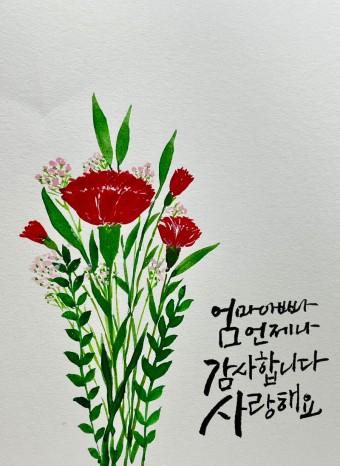 엄마아빠
언제나
감사합니다
사랑해요